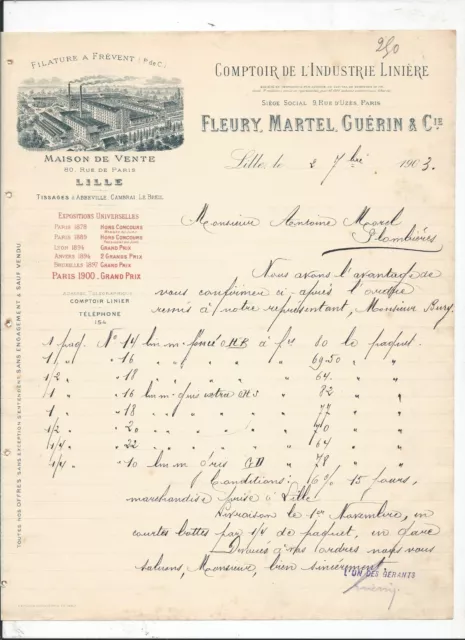 250
FILATURE A FRÉVENT (P. de C.)
COMPTOIR DE L'INDUSTRIE LINIÈRE
SIÈGE SOCIAL 9 RUE D'UZÈS, PARIS
FLEURY, MARTEL, GUÉRIN & CIE
MAISON DE VENTE
80 RUE DE PARIS
LILLE
Lille, le 2 7bre 1903.
TISSAGES à ABBEVILLE, CAMBRAI, LE BREIL
EXPOSITIONS UNIVERSELLES
PARIS 1878 HORS CONCOURS
PARIS 1889 HORS CONCOURS
LYON 1894 GRAND PRIX
ANVERS 1894 2 GRANDS PRIX
BRUXELLES 1897 GRAND PRIX
PARIS 1900, GRAND PRIX
COMPTOIR LINIER
TÉLÉPHONE
154
TOUTES NOS OFFRES SANS EXCEPTION S'ENTENDENT SANS ENGAGEMENT & SAUF VENDU
Monsieur Antoine Morel
Plombières
Nous avons l'avantage de
vous confirmer ci-après l'ordre
remis à notre représentant, Monsieur Bury.
1 paq. No 14 lin m. foncé à f 4 80 le paquet.
1/4 " 16 " " " " 69.50 " "
1/2 " 18 " " " " 64. " "
1 " 16 lin m. gris votre " 82 " "
1 " 18 " " " " 77 " "
1/2 " 20 " " " " 70 " "
1/4 " 22 " " " " 64 " "
1/4 " 10 lin m. " 78 " "
Conditions: 6% 15 jours,
marchandise prise à Lille
Livraison le 1er Novembre, en
courtes bottes par 1/4 de paquet, en gare
Dévoués à vos ordres nous vous
saluons, Monsieur, bien sincèrement.
L'UN DES GÉRANTS